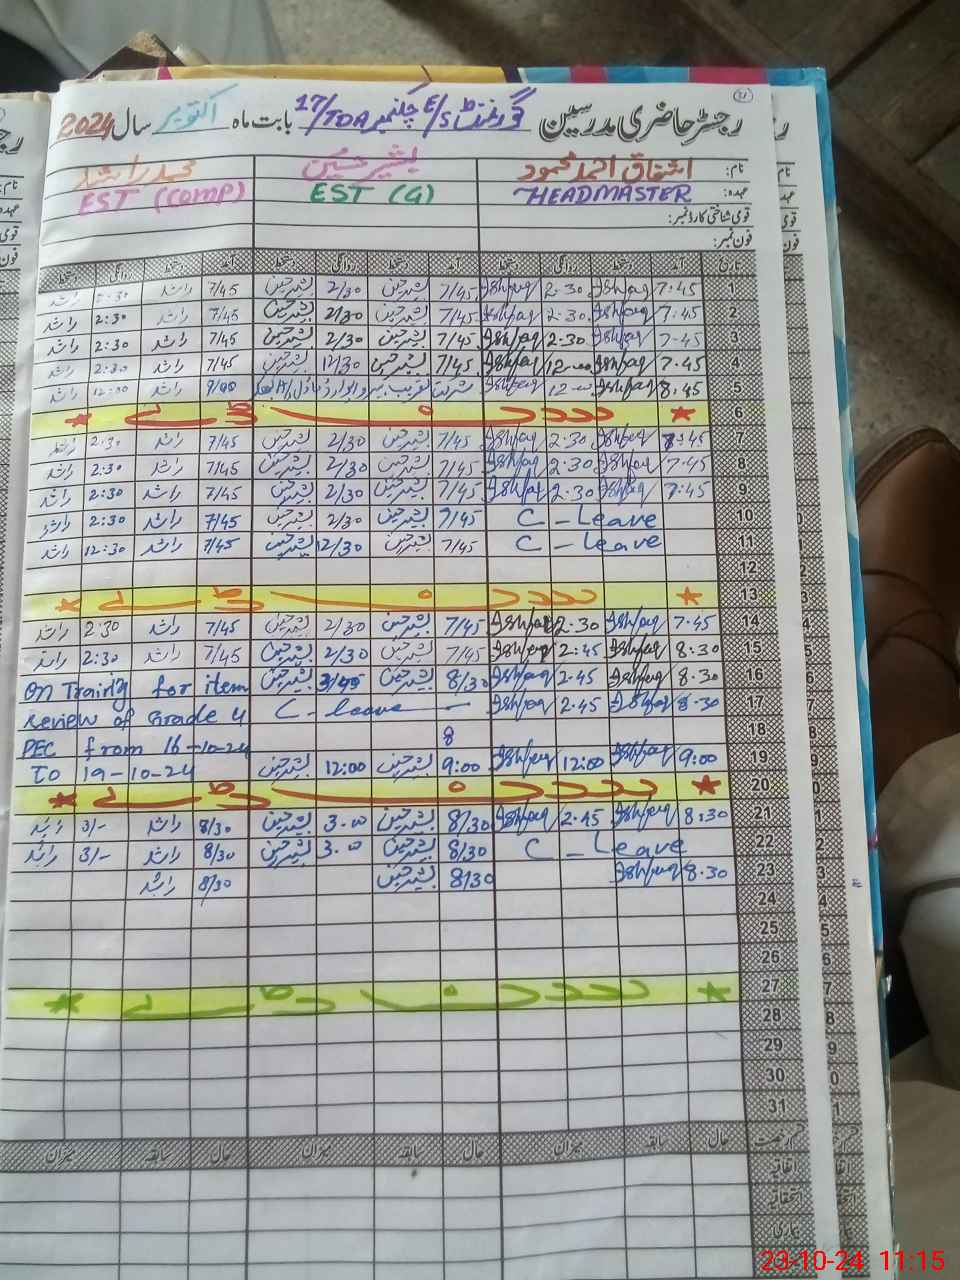 رجسٹر حاضری مدرسین گورنمنٹ E/S چکنمبر 17/TDA بابت ماہ اکتوبر سال 2024
نام: اشفاق احمد محمود بشیر حسین محمد راشد
عہدہ: HEADMASTER EST (G) EST (COMP)
قومی شناختی کارڈ نمبر:
فون نمبر:
تاریخ آمد دستخط روانگی دستخط آمد دستخط روانگی دستخط آمد دستخط روانگی دستخط
1 7:45 Ishfaq 2:30 Ishfaq 7/45 بشیر حسین 2/30 بشیر حسین 7/45 راشد 2:30 راشد
2 7:45 Ishfaq 2:30 Ishfaq 7/45 بشیر حسین 2/30 بشیر حسین 7/45 راشد 2:30 راشد
3 7:45 Ishfaq 2:30 Ishfaq 7/45 بشیر حسین 2/30 بشیر حسین 7/45 راشد 2:30 راشد
4 7:45 Ishfaq 12:00 Ishfaq 7/45 بشیر حسین 12/30 بشیر حسین 7/45 راشد 2:30 راشد
5 8:45 Ishfaq 12:00 Ishfaq شرکت تقریب 9/00 راشد 12:00 راشد
6
7 7:45 Ishfaq 2:30 Ishfaq 7/45 بشیر حسین 2/30 بشیر حسین 7/45 راشد 2:30 راشد
8 7:45 Ishfaq 2:30 Ishfaq 7/45 بشیر حسین 2/30 بشیر حسین 7/45 راشد 2:30 راشد
9 7:45 Ishfaq 2:30 Ishfaq 7/45 بشیر حسین 2/30 بشیر حسین 7/45 راشد 2:30 راشد
10 C - Leave 7/45 بشیر حسین 2/30 بشیر حسین 7/45 راشد 2:30 راشد
11 C - Leave 7/45 بشیر حسین 12/30 بشیر حسین 7/45 راشد 12:30 راشد
12
13
14 7:45 Ishfaq 2:30 Ishfaq 7/45 بشیر حسین 2/30 بشیر حسین 7/45 راشد 2:30 راشد
15 8:30 Ishfaq 2:45 Ishfaq 7/45 بشیر حسین 2/30 بشیر حسین 7/45 راشد 2:30 راشد
16 8:30 Ishfaq 2:45 Ishfaq 8/30 بشیر حسین بشیر حسین On Traing for item
17 8:30 Ishfaq 2:45 Ishfaq C - leave review of Grade 4
18 8 PEC from 16-10-24
19 9:00 Ishfaq 12:00 Ishfaq 9:00 بشیر حسین 12:00 بشیر حسین To 19-10-24
20
21 8:30 Ishfaq 2:45 Ishfaq 8/30 بشیر حسین 3:00 بشیر حسین 8/30 راشد 3/- راشد
22 C - Leave 8/30 بشیر حسین 3:00 بشیر حسین 8/30 راشد 3/- راشد
23 8:30 Ishfaq 8/30 بشیر حسین 8/30 راشد
24
25
26
27
28
29
30
31
قسم رخصت حال سابقہ میزان حال سابقہ میزان حال سابقہ میزان
اتفاقیہ
استحقاقیہ
بیماری
23-10-24 11:15